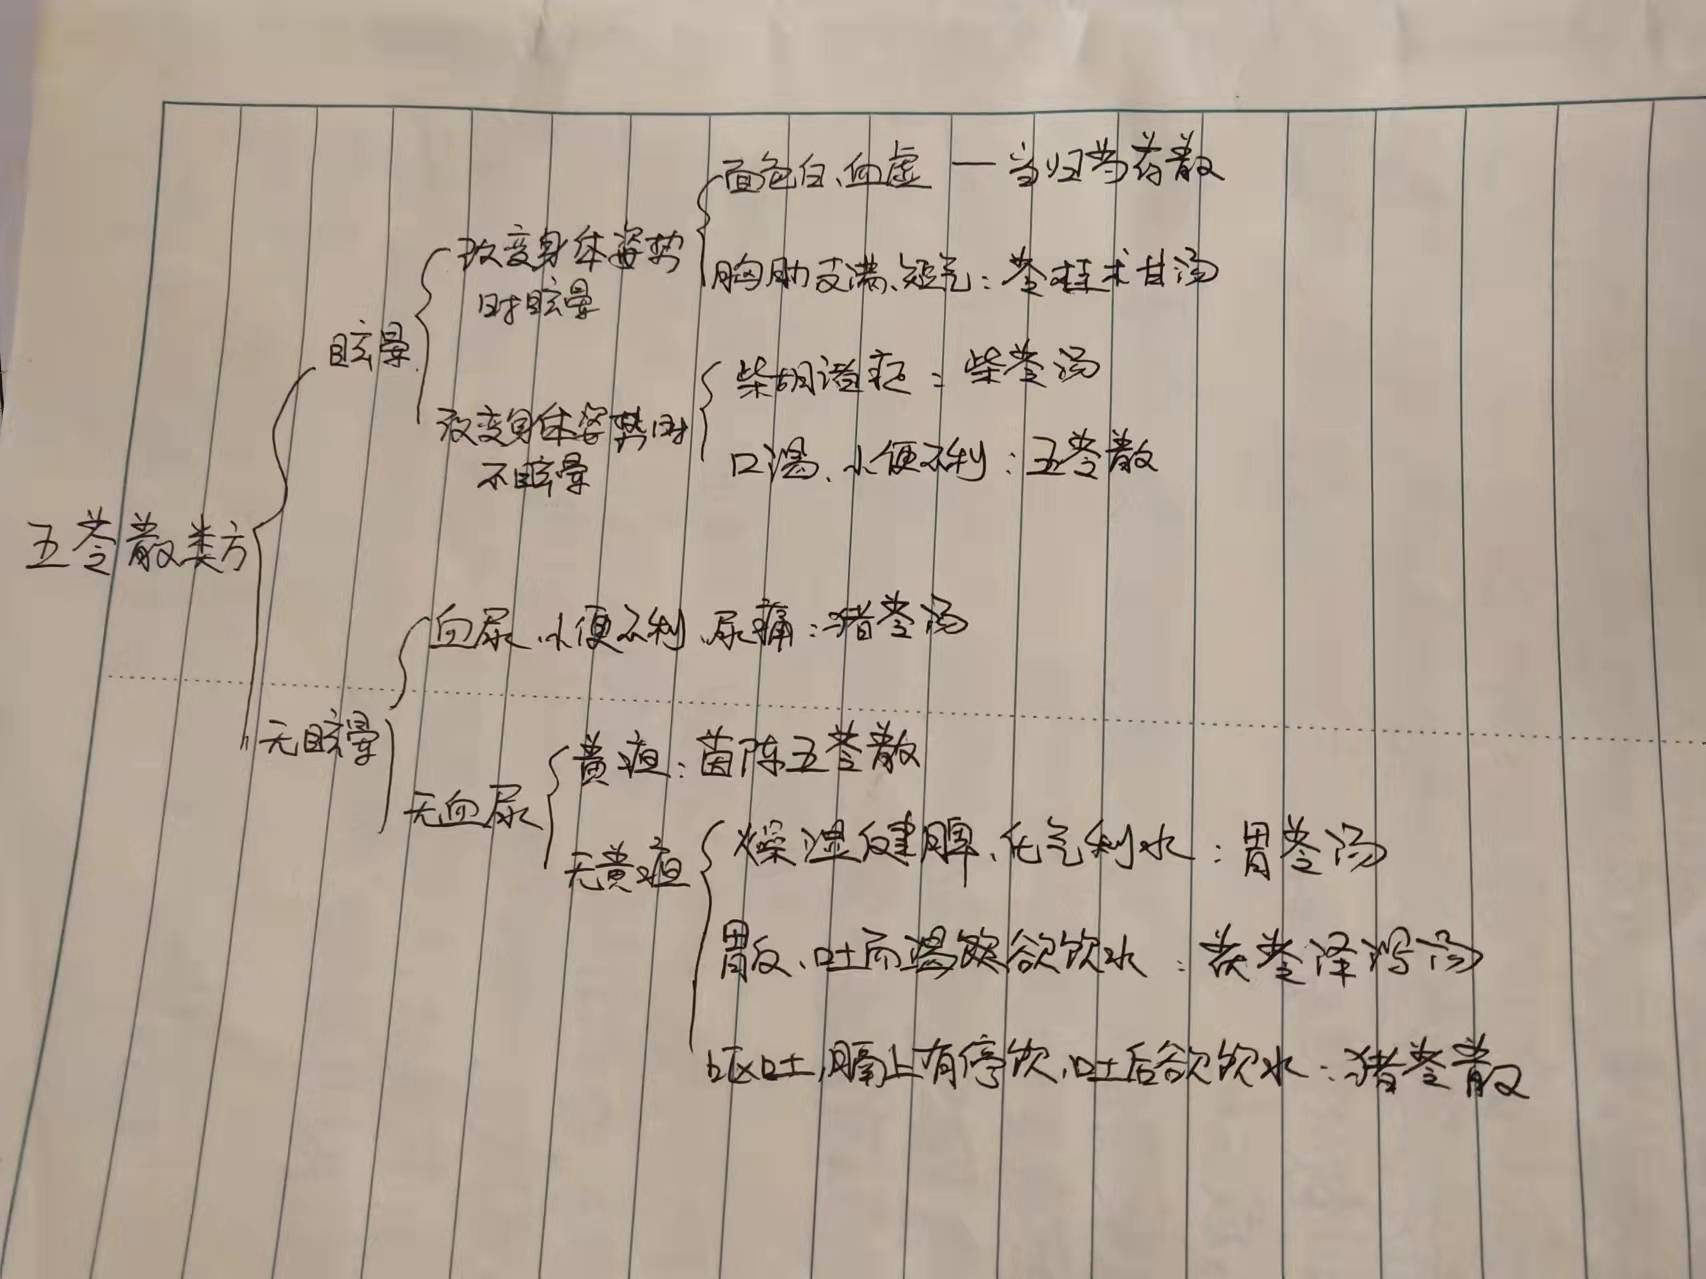 面色白、血虚 — 当归芍药散
改变身体姿势
时眩晕
胸肋支满、短气：苓桂术甘汤
眩晕
柴胡诸症：柴苓汤
改变身体姿势时
不眩晕
口渴、小便不利：五苓散
五苓散类方
血尿、小便不利、尿痛：猪苓汤
无眩晕
黄疸：茵陈五苓散
无血尿
燥湿健脾、化气利水：胃苓汤
无黄疸
胃反、吐而渴欲饮水：茯苓泽泻汤
呕吐，膈上有停饮、吐后欲饮水：猪苓散